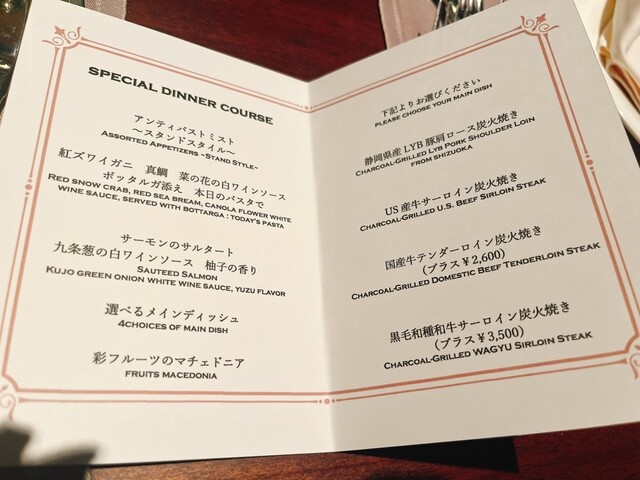 SPECIAL DINNER COURSE
アンティパストミスト
～スタンドスタイル～
ASSORTED APPETIZERS ~STAND STYLE~
紅ズワイガニ 真鯛 菜の花の白ワインソース
ボッタルガ添え 本日のパスタで
RED SNOW CRAB, RED SEA BREAM, CANOLA FLOWER WHITE
WINE SAUCE, SERVED WITH BOTTARGA : TODAY'S PASTA
サーモンのサルタート
九条葱の白ワインソース 柚子の香り
SAUTEED SALMON
KUJO GREEN ONION WHITE WINE SAUCE, YUZU FLAVOR
選べるメインディッシュ
4CHOICES OF MAIN DISH
彩フルーツのマチェドニア
FRUITS MACEDONIA
下記よりお選びください
PLEASE CHOOSE YOUR MAIN DISH
静岡県産 LYB 豚肩ロース炭火焼き
CHARCOAL-GRILLED LYB PORK SHOULDER LOIN
FROM SHIZUOKA
US 産牛サーロイン炭火焼き
CHARCOAL-GRILLED U.S. BEEF SIRLOIN STEAK
国産牛テンダーロイン炭火焼き
(プラス￥2,600)
CHARCOAL-GRILLED DOMESTIC BEEF TENDERLOIN STEAK
黒毛和種和牛サーロイン炭火焼き
(プラス￥3,500)
CHARCOAL-GRILLED WAGYU SIRLOIN STEAK